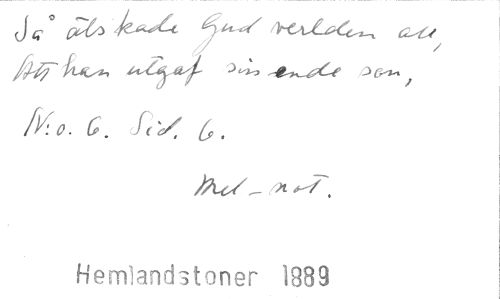 Så älskade Gud verlden all,
Att han utgaf sin ende son,
N:o. 6. Sid. 6.
Mel-not.
Hemlandstoner 1889